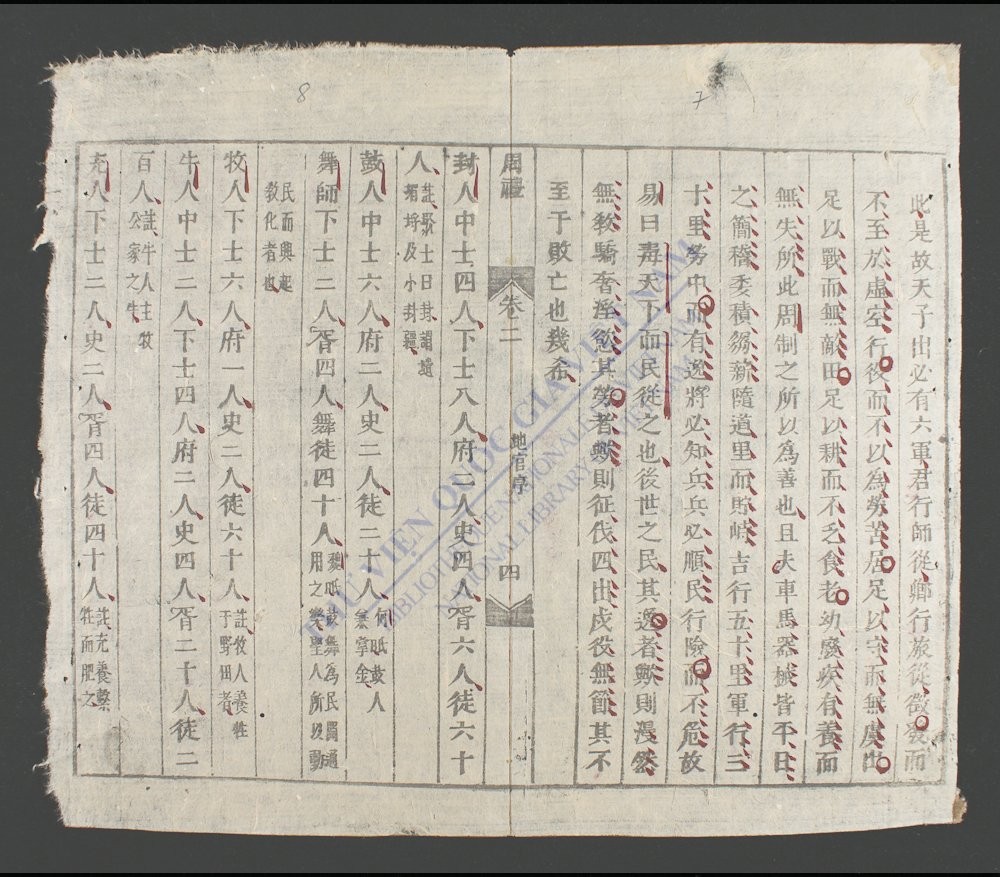 7
此是故天子出必有六軍君行師從卿行旅從徵發而
不至於虛空行役而不以為勞苦居足以守而無虞出
足以戰而無敵田足以耕而不乏食老幼廢疾有養而
無失所此周制之所以為善也且夫車馬器械皆平日
之簡稽委積芻薪隨道里而貯峙吉行五十里軍行三
十里勞中而有逸將必知兵兵必順民行險而不危故
易曰毒天下而民從之也後世之民其逸者歟則漫然
無教驕奢淫慾其勞者歟則征伐四出戍役無節其不
至于敗亡也幾希
周禮 卷二 地官序 四
8
封人中士四人下士八人府二人史四人胥六人徒六十
人註聚土曰封謂壝
堳埒及小封疆
鼓人中士六人府二人史二人徒二十人何氏鼓人
兼掌金
舞師下士二人胥四人舞徒四十人鼓舞為民閒通
用之樂聖人所以動
民而興起
教化者也
牧人下士六人府一人史二人徒六十人註牧人養牲
于野田者
牛人中士二人下士四人府二人史四人胥二十人徒二
百人註牛人主牧
公家之牛
充人下士二人史二人胥四人徒四十人註充養繫
牲而肥之
THƯ VIỆN QUỐC GIA VIỆT NAM
NATIONAL LIBRARY